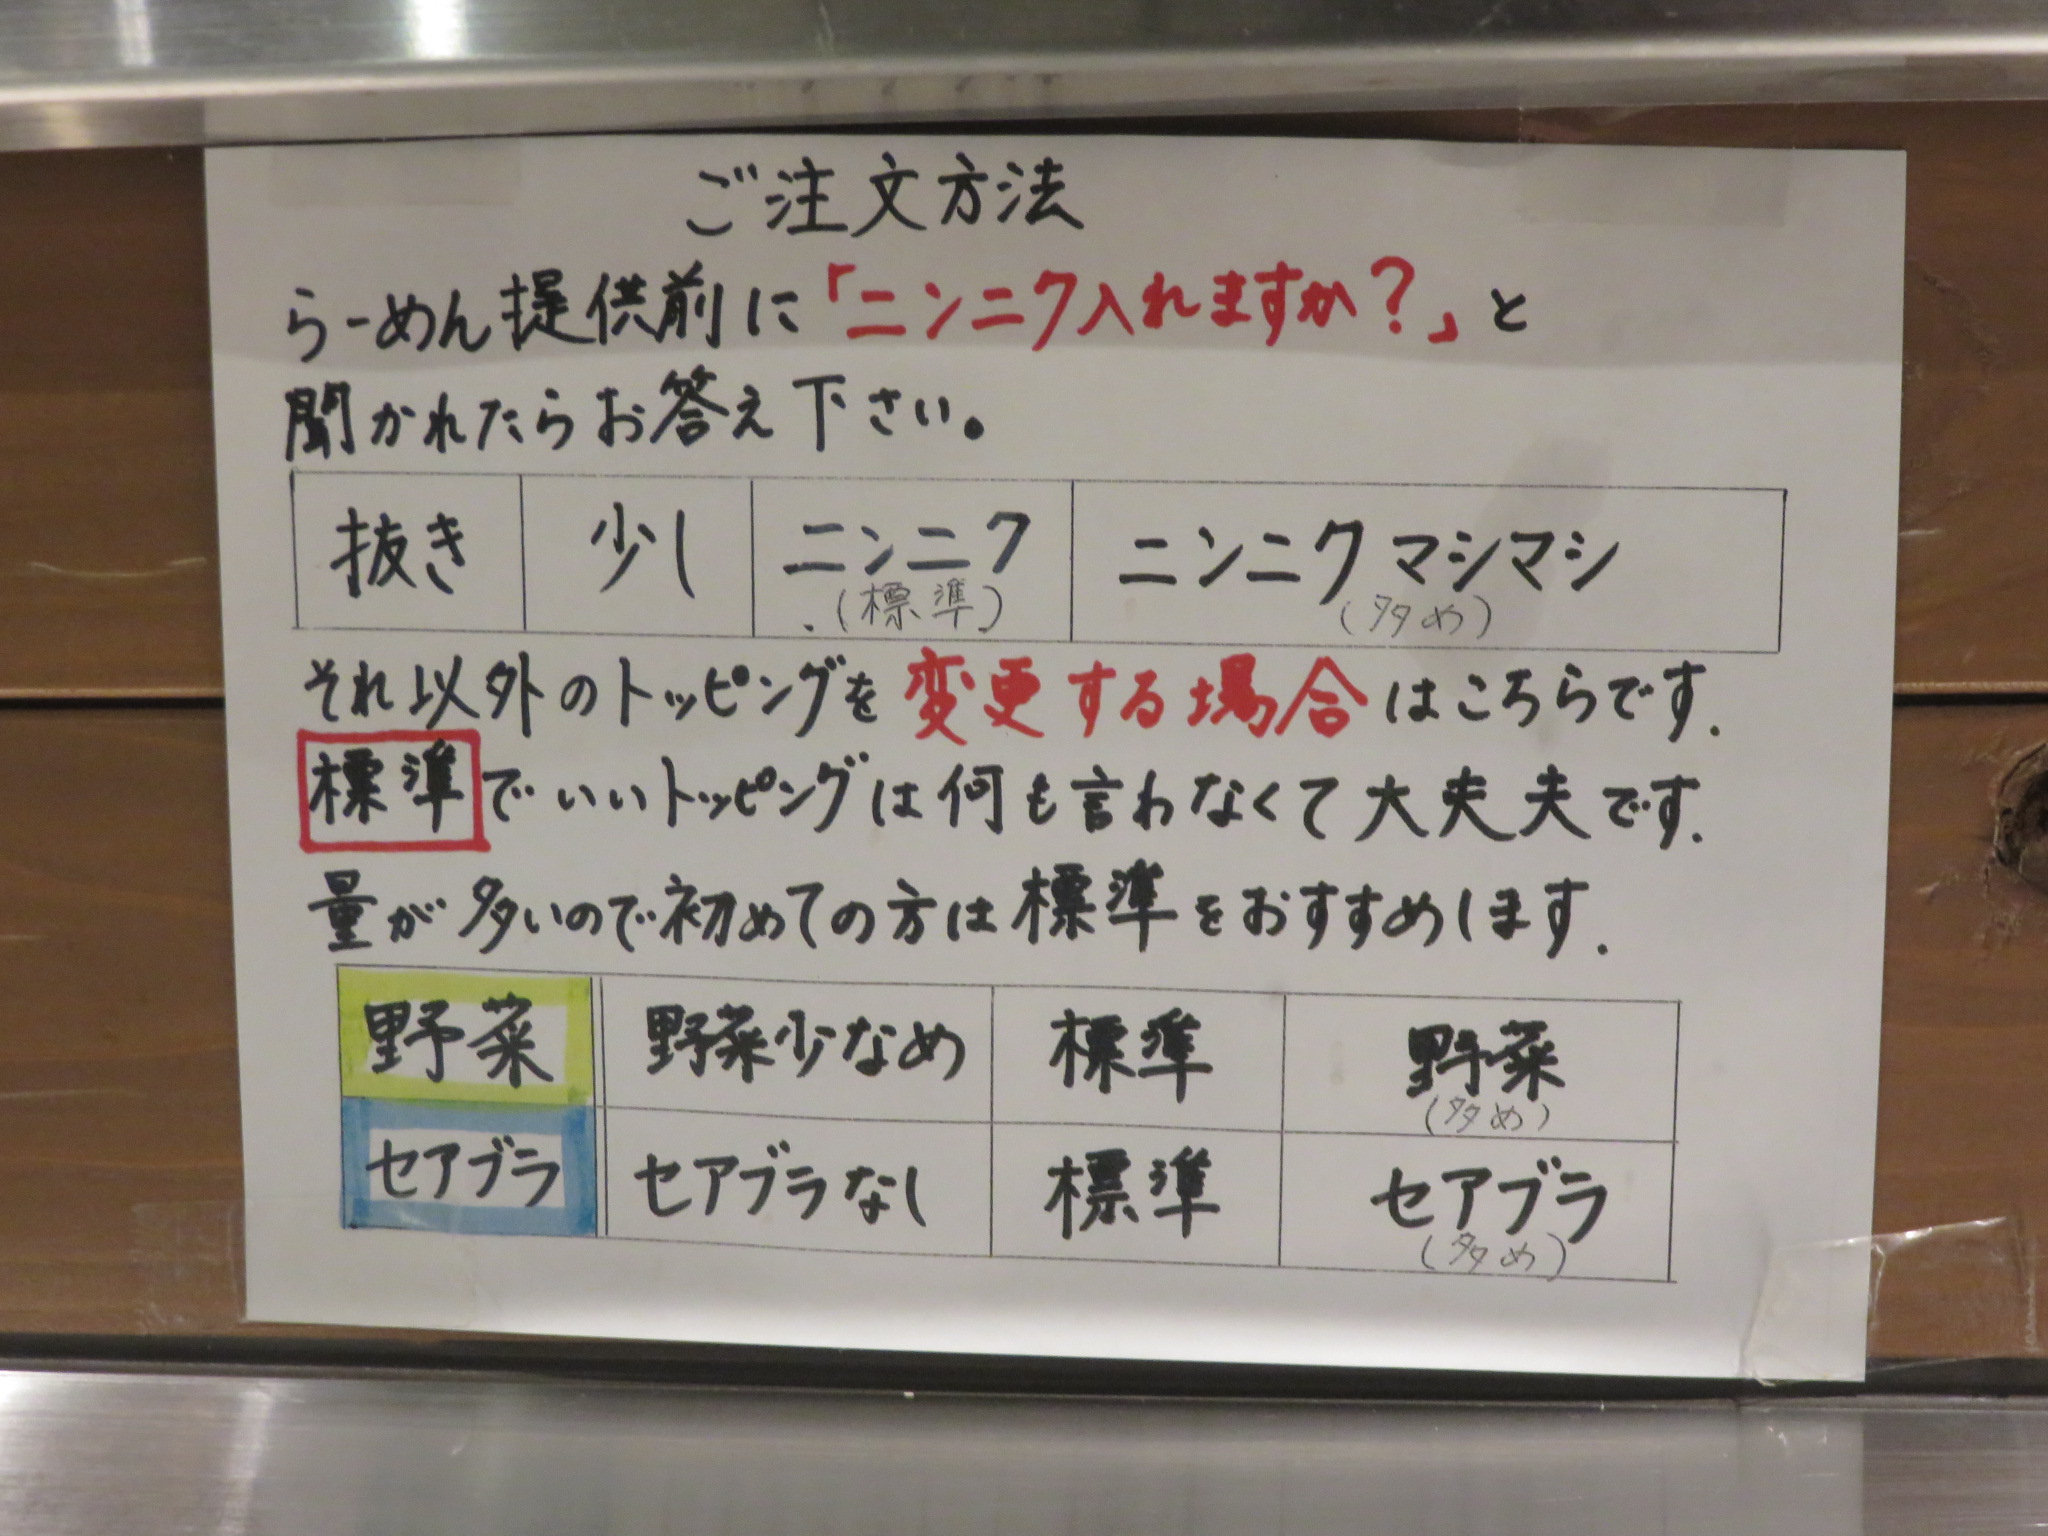 ご注文方法
らーめん提供前に「ニンニク入れますか？」と
聞かれたらお答え下さい。
抜き 少し ニンニク ニンニクマシマシ
(標準) (多め)
それ以外のトッピングを変更する場合はこちらです.
標準でいいトッピングは何も言わなくて大夫夫です.
量が多いので初めての方は標準をおすすめします.
野菜 野菜少なめ 標準 野菜
(多め)
セアブラ セアブラなし 標準 セアブラ
(多め)